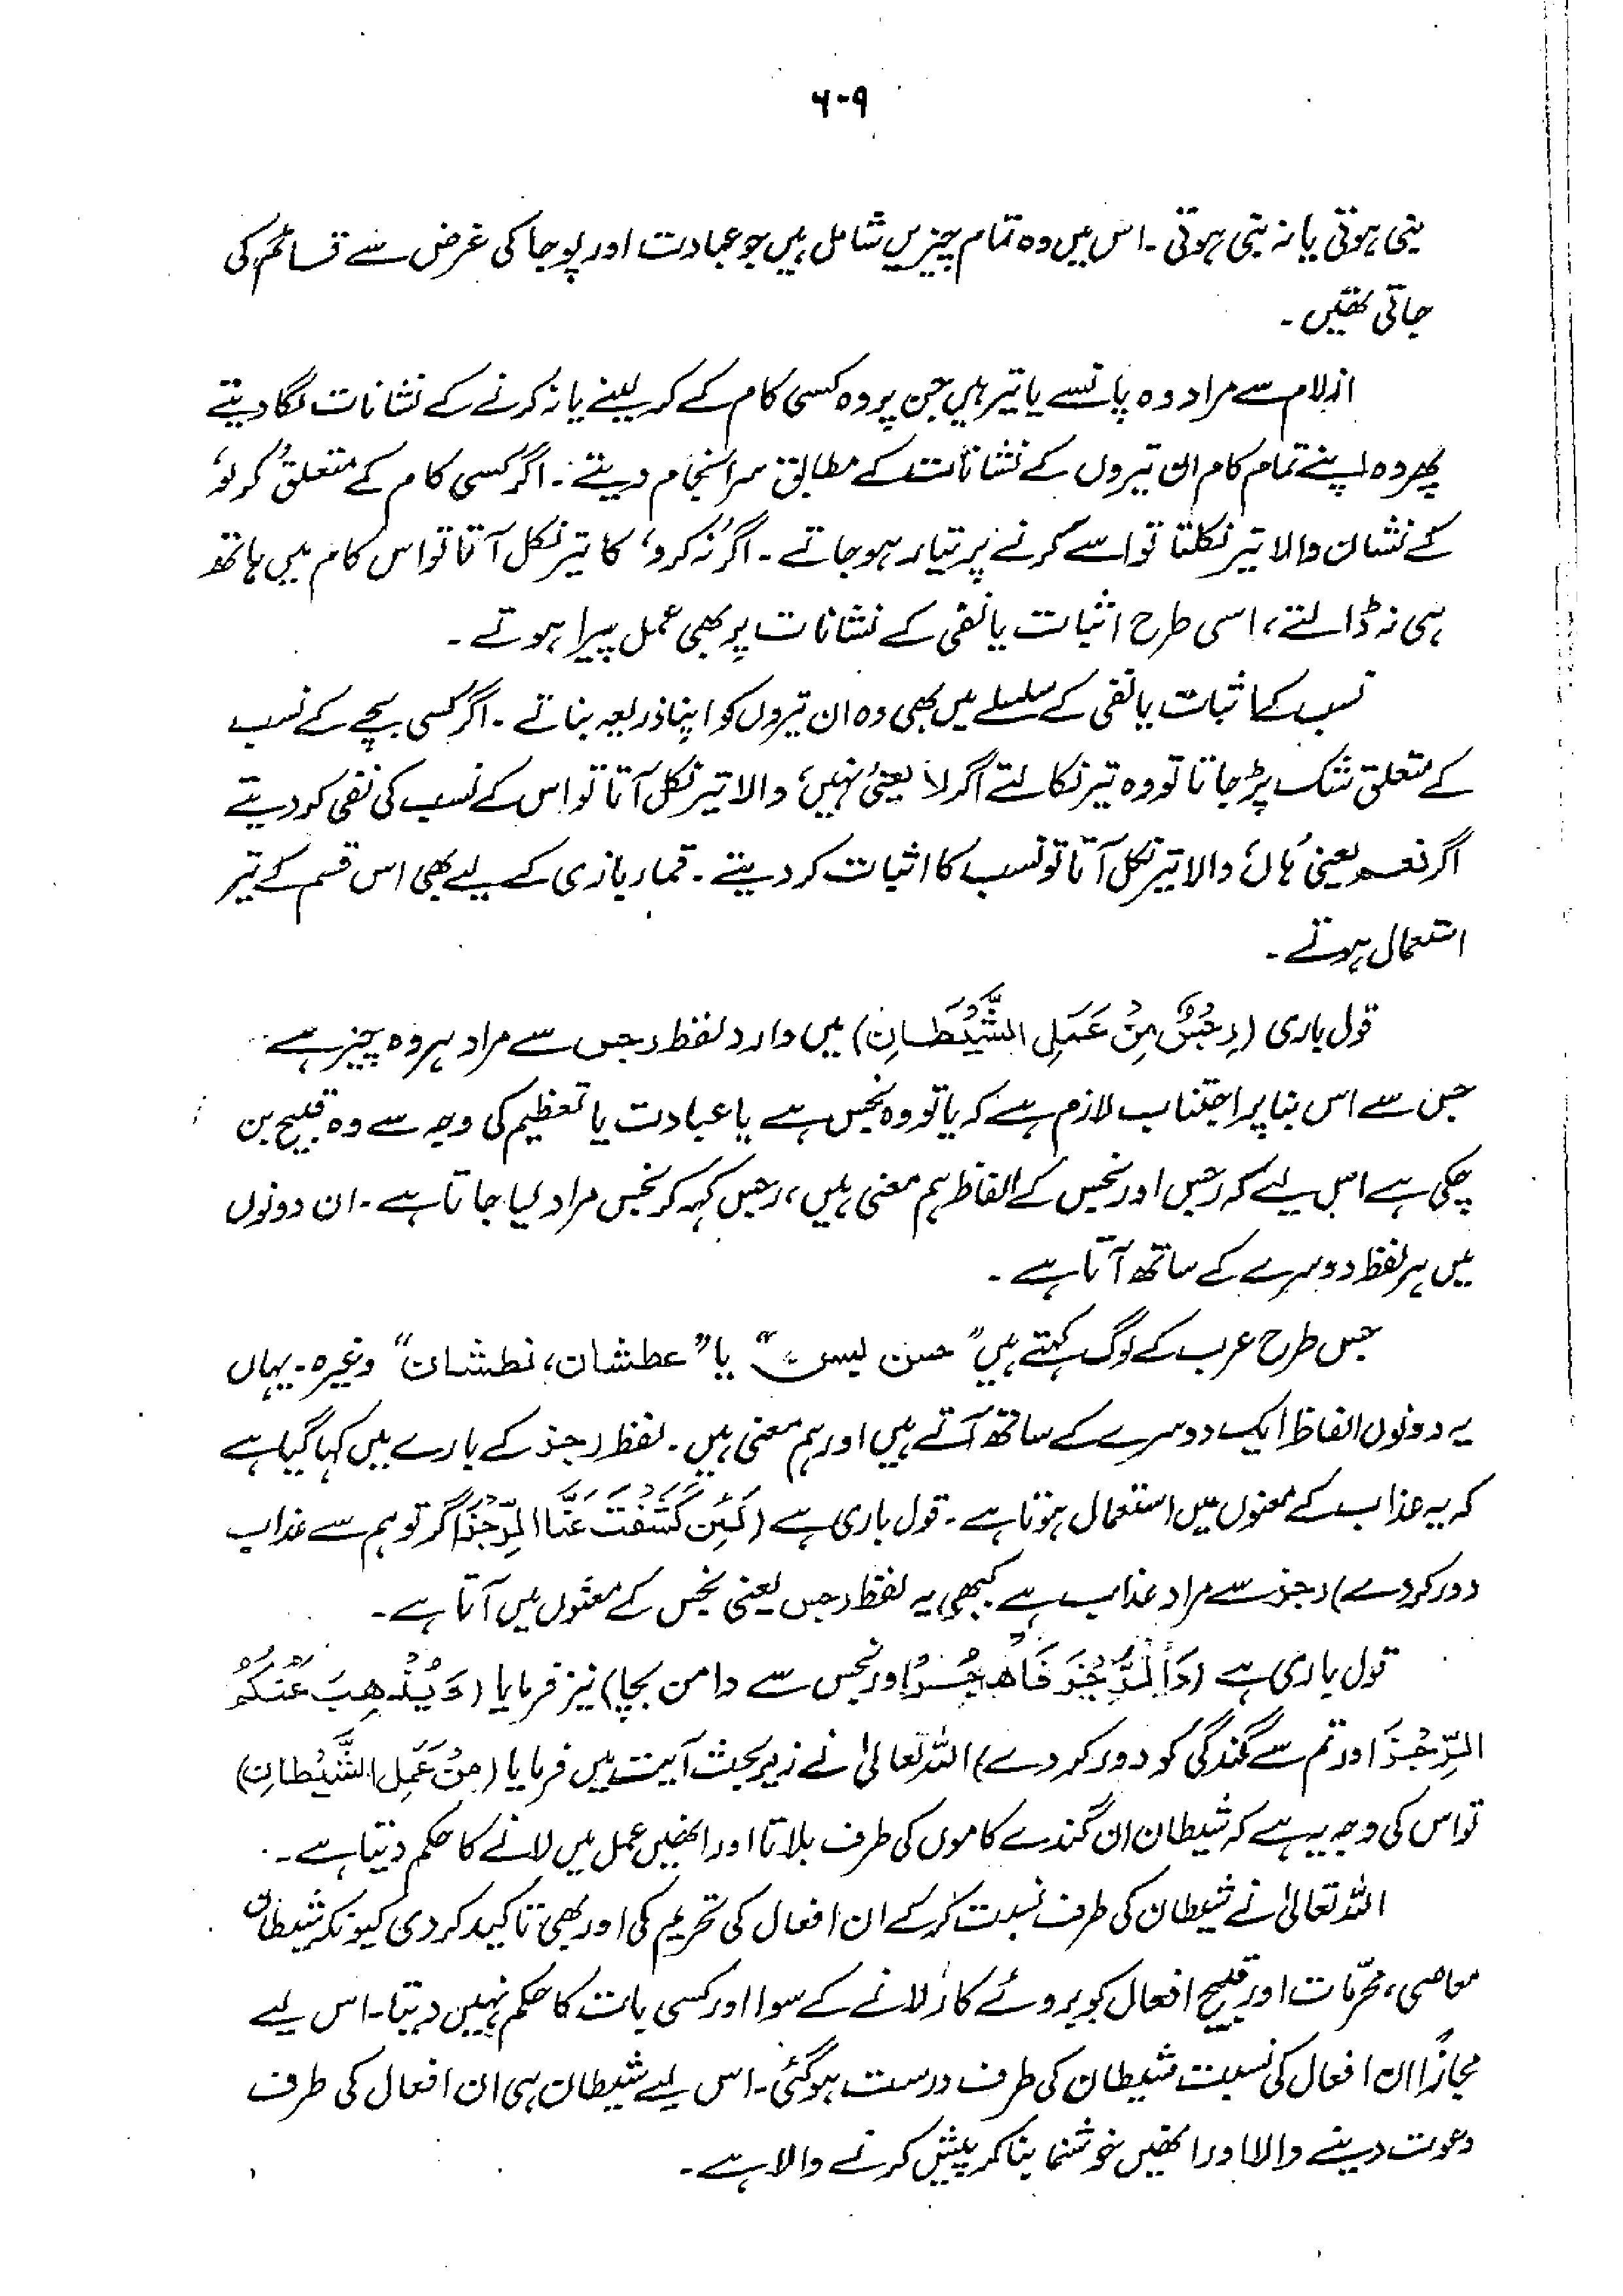 ۶۰۹
بنی ہوتی یا نہ بنی ہوتی ۔ اس میں وہ تمام چیزیں شامل ہیں جو عبادت اور پوجا کی غرض سے قسائم کی
جاتی تھیں ۔
ازلام سے مراد وہ پانسے یا تیر ہیں جن پر وہ کسی کام کے کر لینے یا نہ کرنے کے نشانات لگا دیتے
پھر وہ اپنے تمام کام ان تیروں کے نشانات کے مطابق سرانجام دیتے ۔ اگر کسی کام کے متعلق 'کر لو'
کے نشان والا تیر نکلتا تو اسے کرنے پر تیار ہو جاتے ۔ اگر 'نہ کرو' کا تیر نکل آتا تو اس کام میں ہاتھ
ہی نہ ڈالتے، اسی طرح اثبات یا نفی کے نشانات پر بھی عمل پیرا ہوتے ۔
نسب کے اثبات یا نفی کے سلسلے میں بھی وہ ان تیروں کو اپنا ذریعہ بناتے ۔ اگر کسی بچے کے نسب
کے متعلق شک پڑ جاتا تو وہ تیر نکالتے اگر لا یعنی 'نہیں' والا تیر نکل آتا تو اس کے نسب کی نفی کر دیتے
اگر نعم یعنی 'ہاں' والا تیر نکل آتا تو نسب کا اثبات کر دیتے ۔ قمار بازی کے لیے بھی اس قسم کے تیر
استعمال ہوتے ۔
قول باری (رِجْسٌ مِنْ عَمَلِ الشَّيْطَانِ) میں وارد لفظ رجس سے مراد ہر وہ چیز ہے
جس سے اس بنا پر اجتناب لازم ہے کہ یا تو وہ نجس ہے یا عبادت یا تعظیم کی وجہ سے وہ قبیح بن
چکی ہے اس لیے کہ رجس اور نجس کے الفاظ ہم معنی ہیں، رجس کہہ کر نجس مراد لیا جاتا ہے ۔ ان دونوں
میں ہر لفظ دوسرے کے ساتھ آتا ہے ۔
جس طرح عرب کے لوگ کہتے ہیں "حسن لیسن" یا "عطشان، نطشان" وغیرہ ۔ یہاں
یہ دونوں الفاظ ایک دوسرے کے ساتھ آتے ہیں اور ہم معنی ہیں ۔ لفظ رجز کے بارے میں کہا گیا ہے
کہ یہ عذاب کے معنوں میں استعمال ہوتا ہے ۔ قول باری ہے (لَئِنْ كَشَفْتَ عَنَّا الرِّجْزَ اگر تو ہم سے عذاب
دور کر دے) رجز سے مراد عذاب ہے کبھی یہ لفظ رجس یعنی نجس کے معنوں میں آتا ہے ۔
قول باری ہے (وَالرُّجْزَ فَاهْجُرْ اور نجس سے دامن بچا) نیز فرمایا (وَيُذْهِبَ عَنْكُمْ
الرِّجْزَ اور تم سے گندگی کو دور کر دے) اللہ تعالیٰ نے زیر بحث آیت میں فرمایا (مِنْ عَمَلِ الشَّيْطَانِ)
تو اس کی وجہ یہ ہے کہ شیطان ان گندے کاموں کی طرف بلاتا اور انھیں عمل میں لانے کا حکم دیتا ہے ۔
اللہ تعالیٰ نے شیطان کی طرف نسبت کر کے ان افعال کی تحریم کی اور بھی تاکید کر دی کیونکہ شیطان
معاصی، محرّمات اور قبیح افعال کو بروئے کار لانے کے سوا اور کسی بات کا حکم نہیں دیتا ۔ اس لیے
مجازًا ان افعال کی نسبت شیطان کی طرف درست ہو گئی ۔ اس لیے شیطان ہی ان افعال کی طرف
دعوت دینے والا اور انھیں خوشنما بنا کر پیش کرنے والا ہے ۔